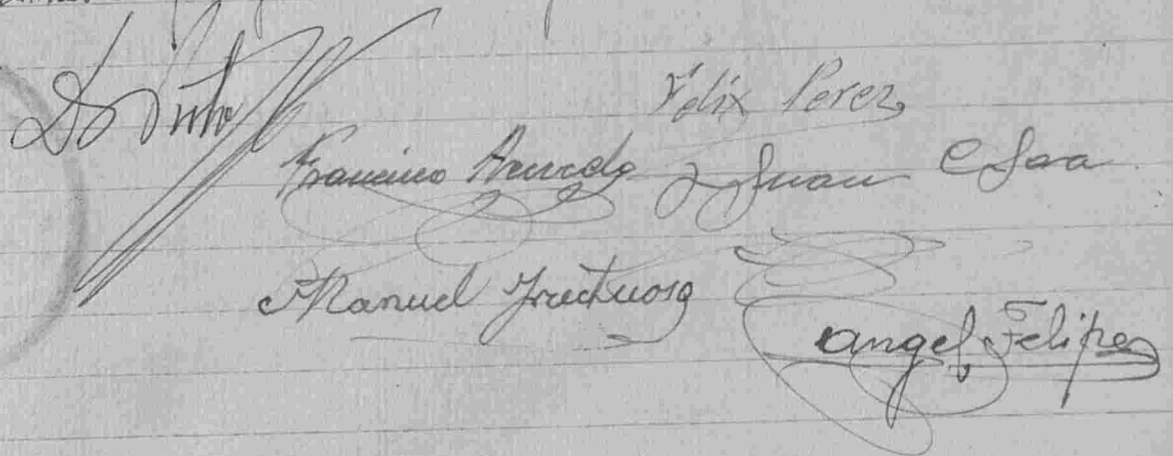 Felix Perez
Francisco Acevedo Juan C Saa
Manuel Fructuoso
Angel Felipe